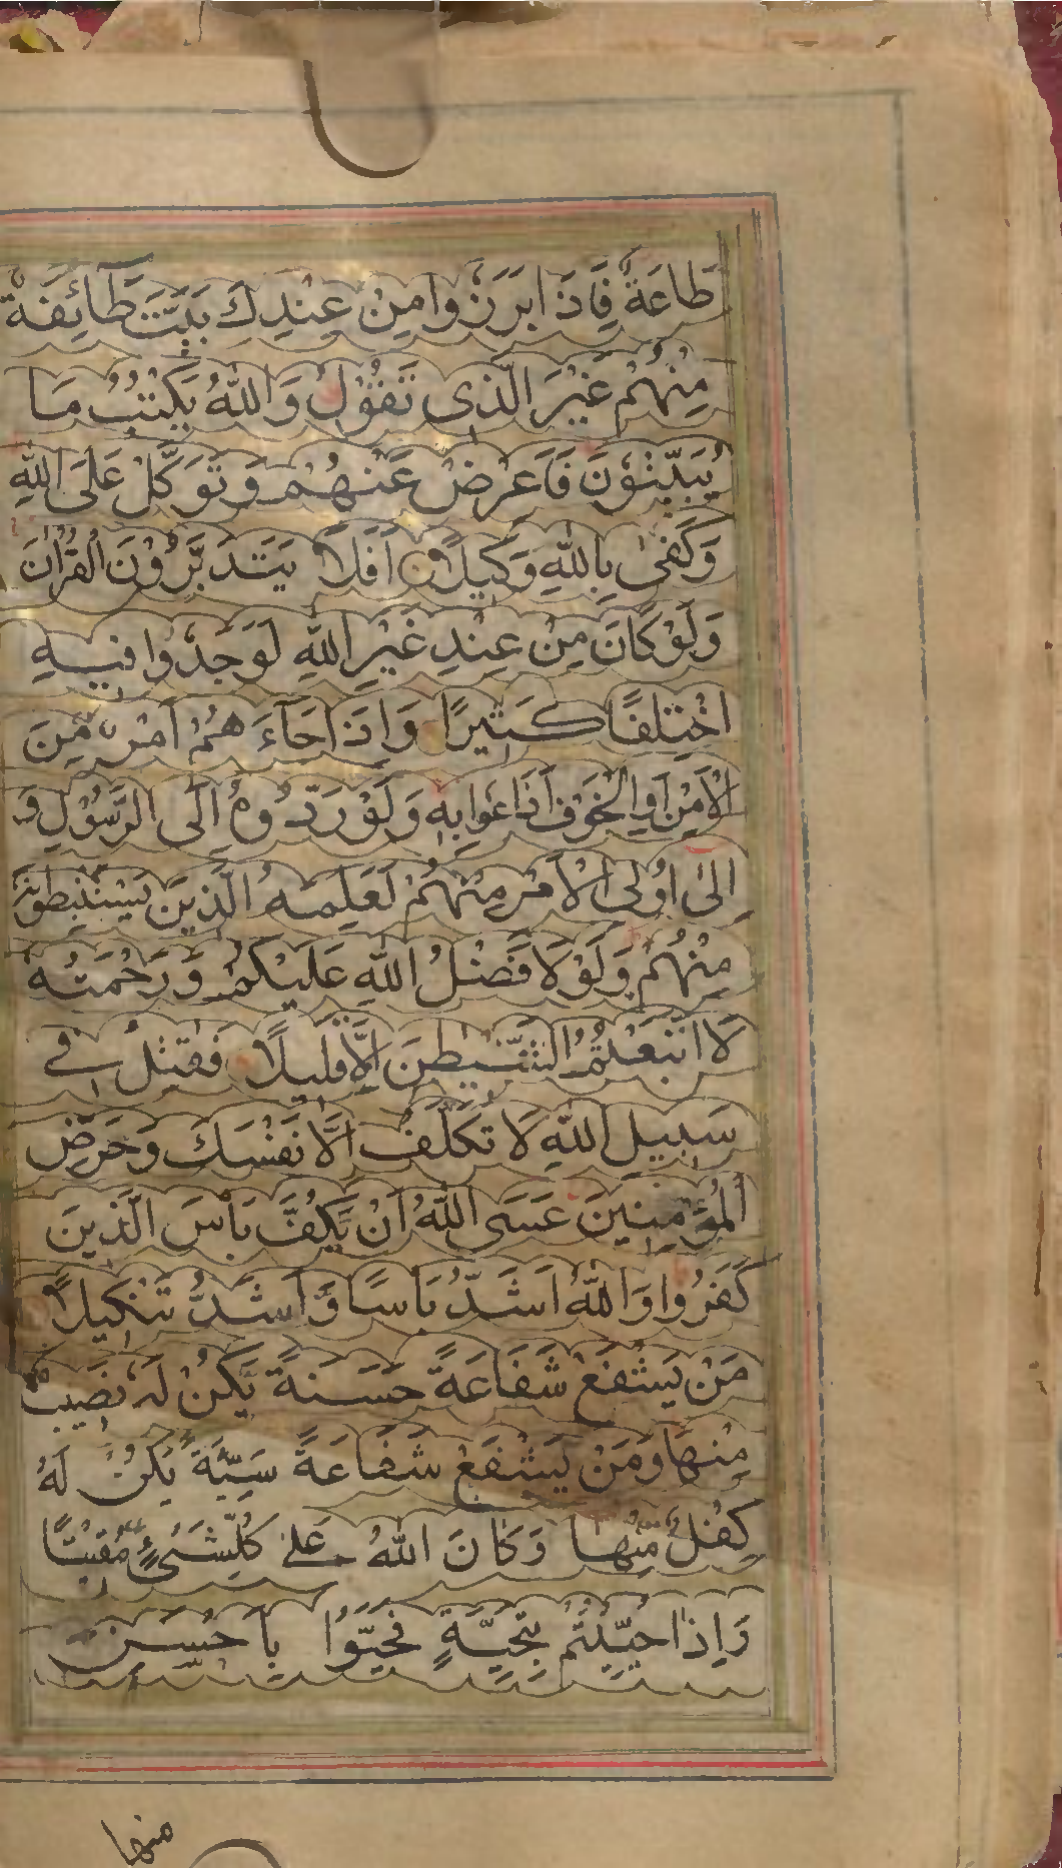 طَاعَةٌ فَاِذَا بَرَزُوا مِنْ عِنْدِكَ بَيَّتَ طَآئِفَةٌ
مِنْهُمْ غَيْرَ الَّذى تَقُوْلُ وَاللّٰهُ يَكْتُبُ مَا
يُبَيِّتُوْنَ فَاَعْرِضْ عَنْهُمْ وَتَوَكَّلْ عَلَى اللّٰهِ
وَكَفىٰ بِاللّٰهِ وَكِيْلًا اَفَلَا يَتَدَبَّرُوْنَ الْقُرْاٰنَ
وَلَوْ كَانَ مِنْ عِنْدِ غَيْرِ اللّٰهِ لَوَجَدُوا فِيْهِ
اخْتِلَفًا كَثِيْرًا وَاِذَا جَآءَ هُمْ اَمْرٌ مِّنَ
الْاَمْنِ اَوِ الْخَوْفِ اَذَاعُوا بِهٖ وَلَوْ رَدُّوهُ اِلَى الرَّسُوْلِ وَ
اِلىٰ اُولِى الْاَمْرِ مِنْهُمْ لَعَلِمَهُ الَّذِيْنَ يَسْتَنْبِطُوْنَهٗ
مِنْهُمْ وَلَوْلَا فَضْلُ اللّٰهِ عَلَيْكُمْ وَرَحْمَتُهٗ
لَا اتَّبَعْتُمُ الشَّيْطٰنَ اِلَّا قَلِيْلًا فَقٰتِلْ فى
سَبِيْلِ اللّٰهِ لَا تُكَلَّفُ اِلَّا نَفْسَكَ وَحَرِّضِ
الْمُؤْمِنِيْنَ عَسَى اللّٰهُ اَنْ يَّكُفَّ بَأْسَ الَّذِيْنَ
كَفَرُوا وَاللّٰهُ اَشَدُّ بَاْسًا وَّ اَشَدُّ تَنْكِيْلًا
مَنْ يَشْفَعْ شَفَاعَةً حَسَنَةً يَّكُنْ لَهٗ نَصِيْبٌ
مِنْهَا وَمَنْ يَشْفَعْ شَفَاعَةً سَيِّئَةً يَكُنْ لَهٗ
كِفْلٌ مِّنْهَا وَكَانَ اللّٰهُ عَلىٰ كُلِّ شَىْءٍ مُّقِيْتًا
وَاِذَا حُيِّيْتُمْ بِتَحِيَّةٍ فَحَيُّوْا بِاَحْسَنَ
منها